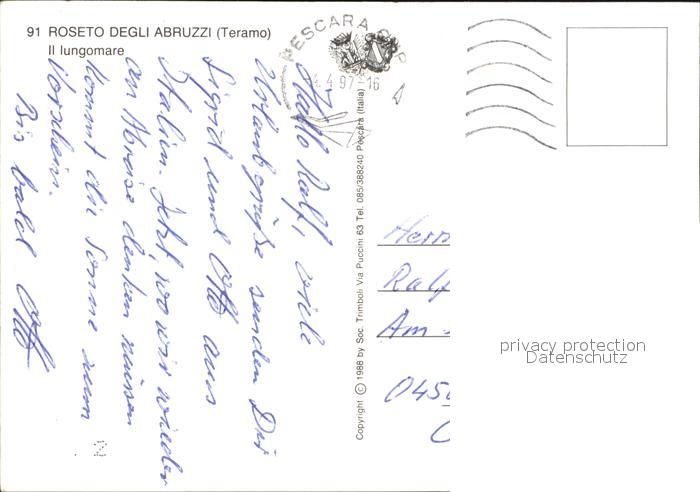 91 ROSETO DEGLI ABRUZZI (Teramo)
Il lungomare
PESCARA C.P.
4.4.97-16
Hallo Ralf, viele
Urlaubsgrüße senden Dir
Sigrid und Otto aus
Italien. Jetzt, wo wir wieder
an Abreise denken müssen
kommt die Sonne zum
Vorschein.
Bis bald Otto
Copyright © 1988 by Soc. Trimboli Via Puccini 63 Tel. 085/388240 Pescara (Italia)
Herrn
Ralf
Am
045
privacy protection
Datenschutz